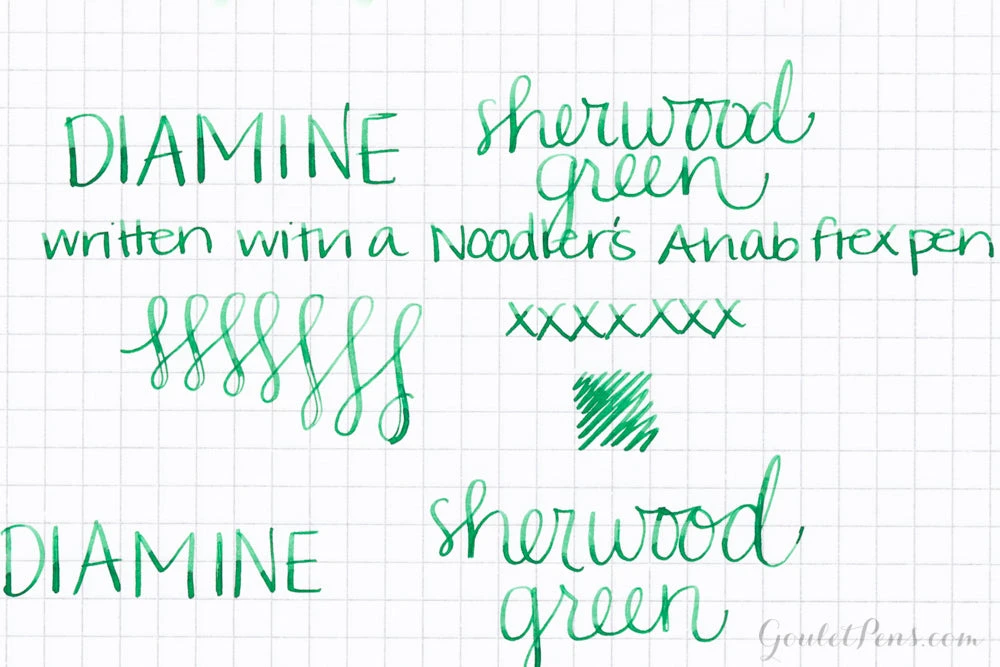 DIAMINE sherwood
green
written with a Noodler's Ahab flex pen
xxxxxxx
DIAMINE sherwood
green
GouletPens.com